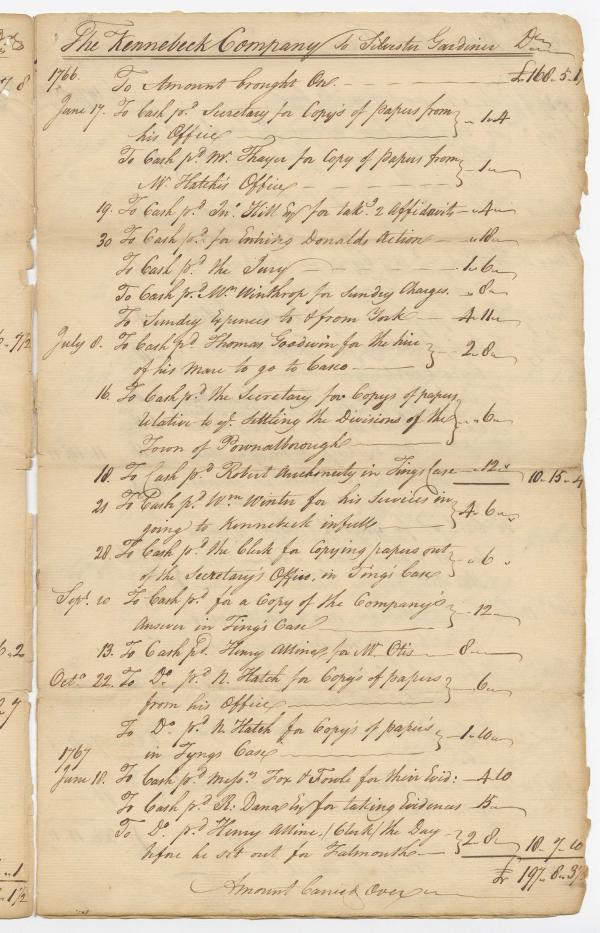 The Kennebeck Company To Silvester Gardiner Dr
1766. To Amount brought On £168 5 1
June 17. To Cash pd. Secretary for Copy's of papers from
his Office 1 4
To Cash pd Mr. Thayer for Copy of papers from
Mr Hatch's Office 1
19. To Cash pd. Jno. Hill Esq for takg. 2 Affidavits 4
30 To Cash pd. for Entring Donalds Action 18
To Cash pd. the Jury 1 6
To Cash pd. Mr Winthrop for Sundry Charges 8
To Sundry Expences to & from York 4 11
July 8. To Cash pd Thomas Goodwin for the hire
of his Mare to go to Casco 2 8
16. To Cash pd. the Secretary for Copys of papers
relative to ye. Settling the Divisions of the
Town of Pownalborough 6
18. To Cash pd Robert Auchmuty in Tyngs Case 12 10 15 4
21 To Cash pd Wm Winter for his Services in
going to Kennebeck in full 4 6
28. To Cash pd. the Clerk for Copying papers out
of the Secretary's Office, in Tyng's Case 6
Sept. 20 To Cash pd for a Copy of the Company's
Answer in Tyng's Case 12
13. To Cash pd. Henry Alline, for Mr. Otis 8
Octo. 22. To Do. pd N. Hatch for Copy's of papers
from his Office 6
To Do. pd N. Hatch for Copy's of paper's
in Tyngs Case 1 10
1767
June 18. To Cash pd Messrs Fox & Fowle for their Evid: 4 10
To Cash pd R: Dana Esq for taking Evidences 15
To Do. pd Henry Alline, (Clerk) the Day
before he set out for Falmouth 2 8 18 7 10
£ 197 8 3
Amount Carried Over